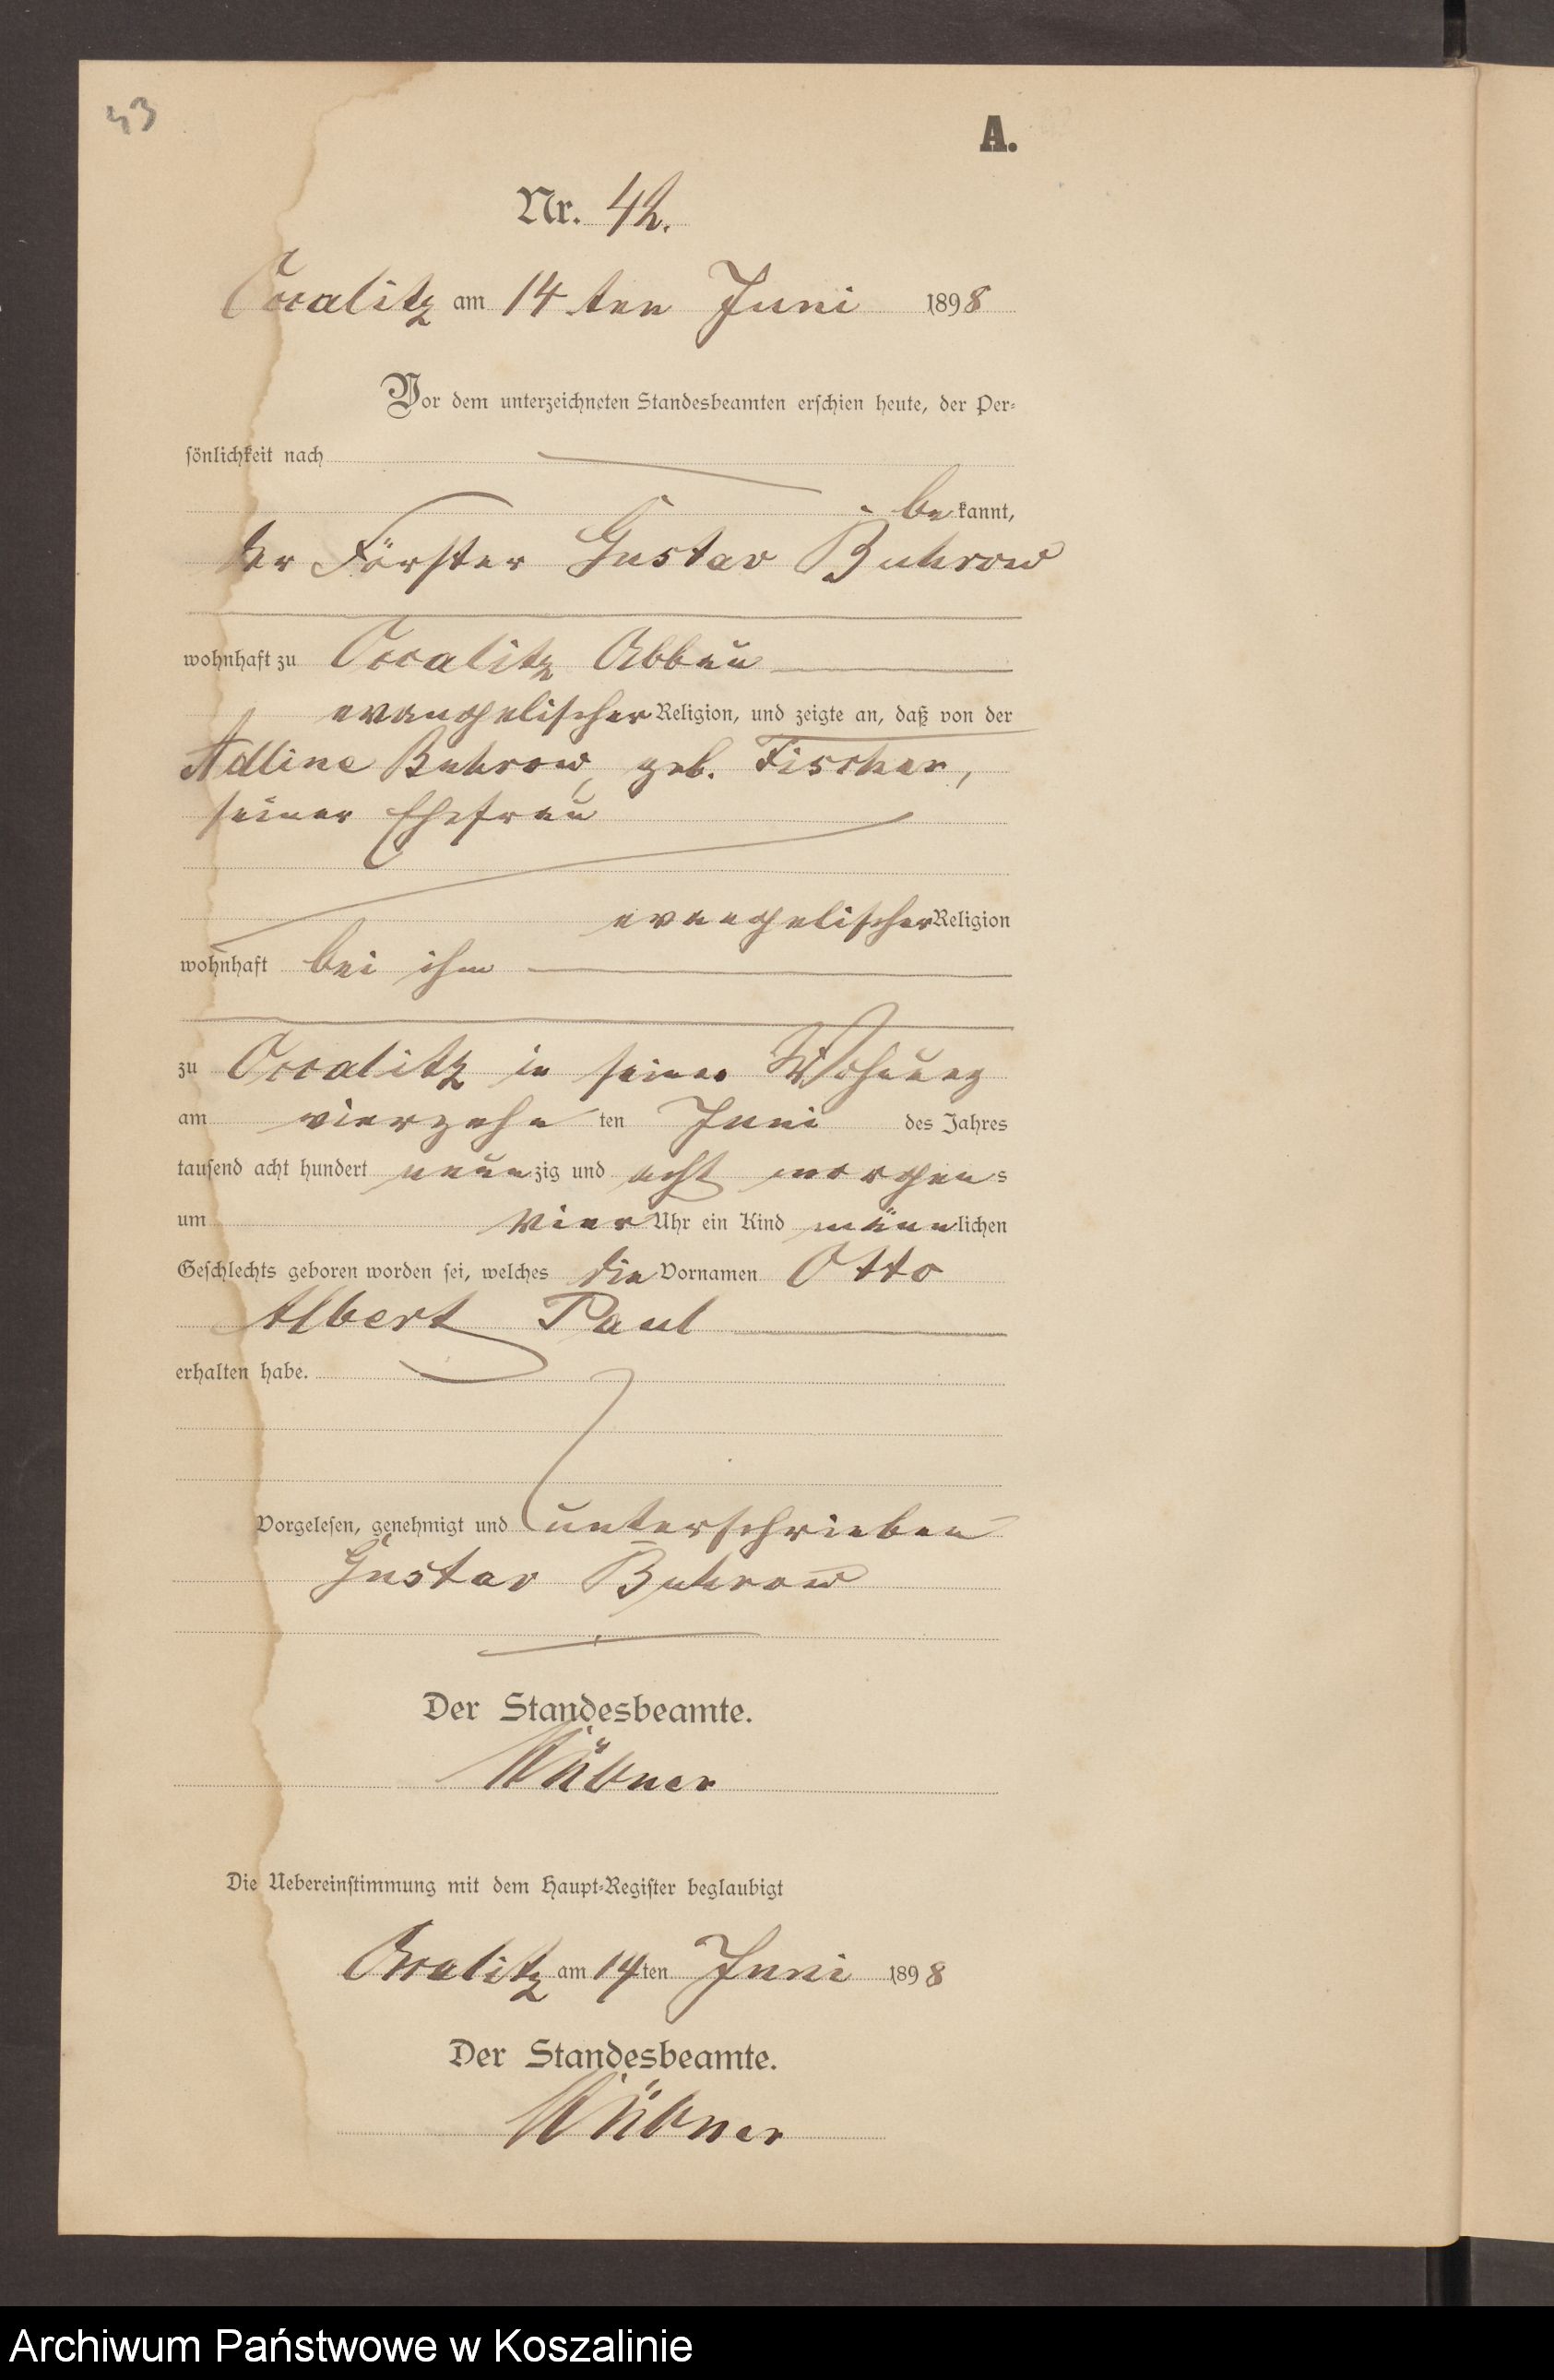 43
A.
Nr. 42.
Occalitz am 14 ten Juni 1898
Vor dem unterzeichneten Standesbeamten erschien heute, der Per-
sönlichkeit nach
bekannt,
der Förster Gustav Buhrow
wohnhaft zu Occalitz Abbau
evangelischer Religion, und zeigte an, daß von der
Adline Buhrow, geb. Fischer,
seiner Ehefrau
evangelischer Religion
wohnhaft bei ihm
zu Occalitz in seiner Wohnung
am vierzehn ten Juni des Jahres
tausend acht hundert neunzig und acht morgens
um vier Uhr ein Kind männlichen
Geschlechts geboren worden sei, welches die Vornamen Otto
Albert Paul
erhalten habe.
Vorgelesen, genehmigt und unterschrieben
Gustav Buhrow
Der Standesbeamte.
Die Uebereinstimmung mit dem Haupt-Register beglaubigt
Occalitz am 14ten Juni 1898
Der Standesbeamte.
Archiwum Państwowe w Koszalinie